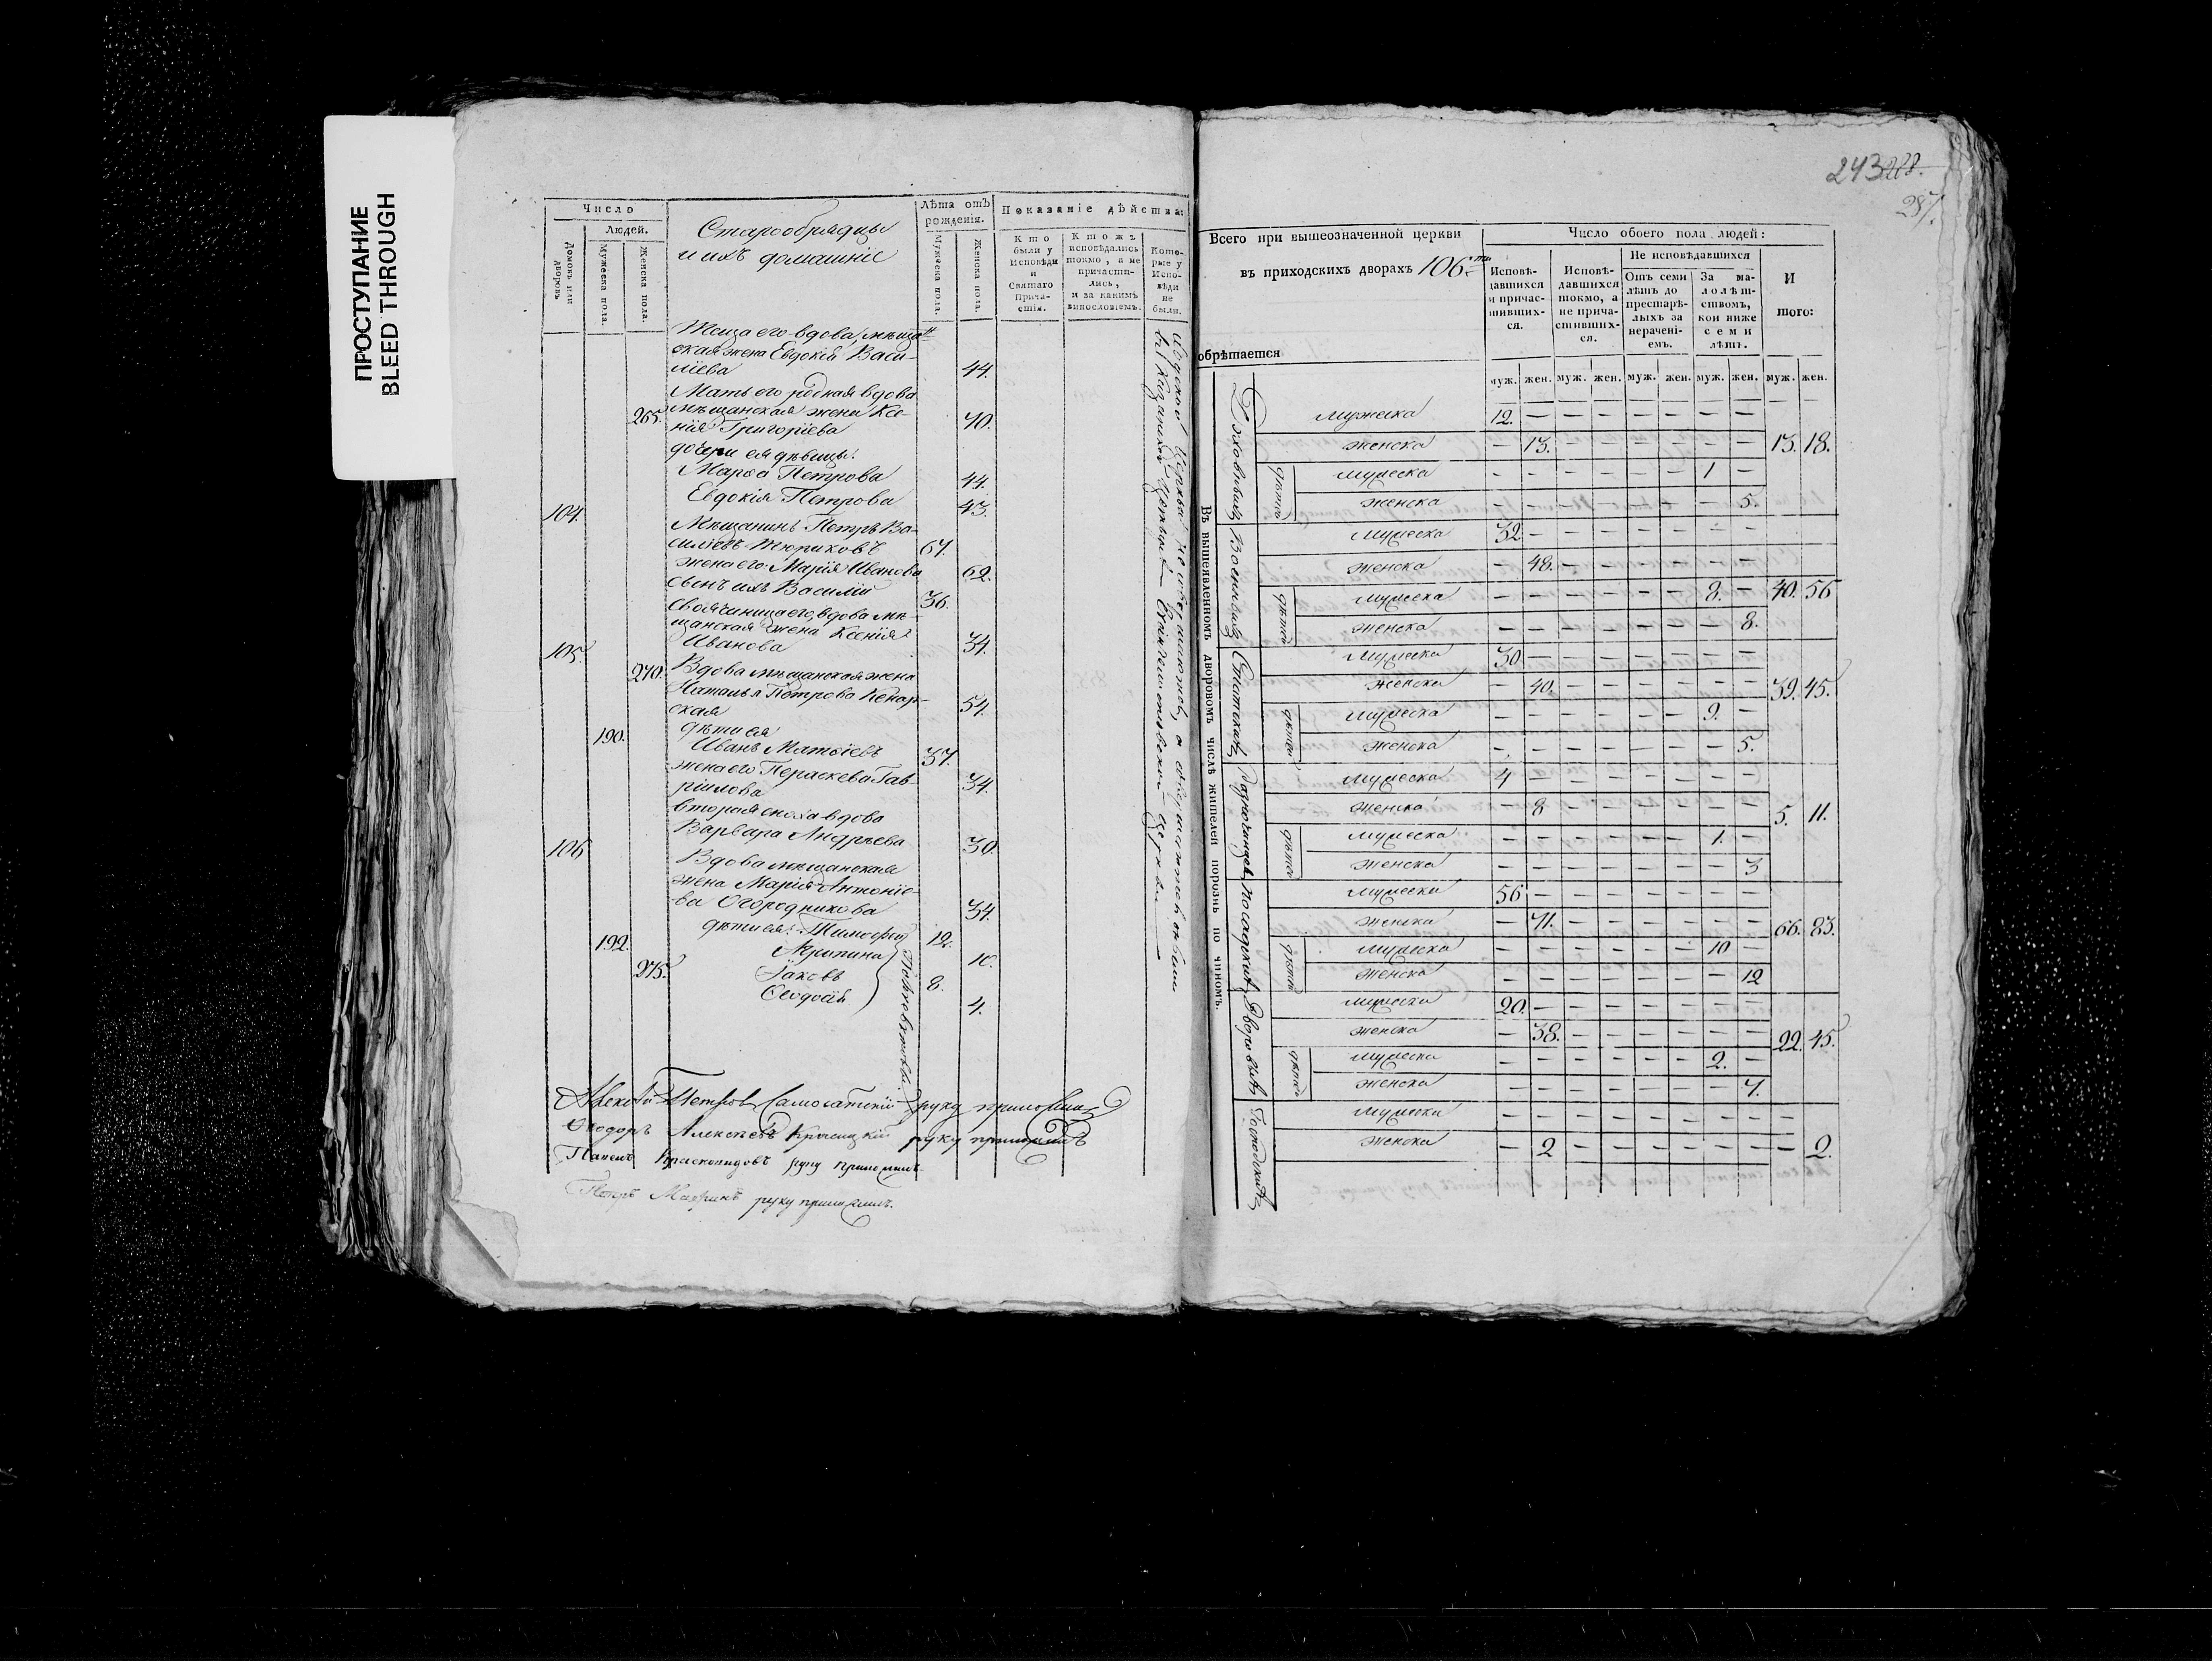 ПРОСТУПАНИЕ
BLEED THROUGH
Число
Людей.
Домовъ или дворовъ.
Мужеска пола.
Женска пола.
Старообрядцы
и ихъ домашніе
Лѣта отъ рожденія.
Мужеска пола.
Женска пола.
Показаніе дѣйства:
Кто были у Исповѣди и Святаго Прича-стія.
Кто жъ исповѣдались токмо, а не причасти-лись, и за какимъ винословіемъ.
Кото-рые у Испо-вѣди не были.
Теща его вдова мѣщан
ская жена Евдокія Васи-
лiева 44.
Мать его родная вдова
265. мѣщанская жена Ксе- 70.
нія Григоріева
дочери ея дѣвицы:
Марѳа Петрова 44.
Евдокія Петрова 43.
104. Мѣщанинъ Петръ Ва-
силіевъ Тюриковъ 67.
жена его Марія Иванова 62.
сынъ ихъ Василій 36.
Своячиница его, вдова мѣ-
щанская жена Ксенія
Иванова 34.
105. 270. Вдова мѣщанская жена
Наталья Петрова
ская 54.
дѣти ея
190. Иванъ Матѳіевъ 37.
жена его Параскева Гав-
ріилова 34.
вторая сноха вдова
Варвара Андрѣева 30.
106 Вдова мѣщанская
жена Марія Антоніе-
ва Огородникова 34.
дѣти ея: Тимоѳей 12.
192. Агрипина 10.
275. Іаковъ 8.
Ѳеодосія 4.
Алексѣй Петровъ Самосатскій руку приложилъ
Ѳеодоръ Алексѣевъ руку приложилъ
Павелъ руку приложилъ
Петръ руку приложилъ.
243 288.
287.
Всего при вышеозначенной церкви
въ приходскихъ дворахъ 106.ти
обрѣтается
Число обоего пола людей:
Исповѣ-давшихся и причас-тившихся.
Исповѣ-давшихся токмо, а не прича-стившихся.
Не исповѣдавшихся
Отъ семи лѣтъ до престарѣ-лыхъ за нерачені-емъ.
За мало-лѣт-ствомъ, кои ниже семи лѣтъ.
И того:
муж. жен. муж. жен. муж. жен. муж. жен. муж. жен.
Въ вышеявленномъ дворовомъ числѣ жителей порознь по чиномъ.
Духовныхъ
мужеска 12. — — — — — — —
женска — 13. — — — — — — 13. 18.
дѣтей
мужеска — — — — — — 1 —
женска — — — — — — — 5.
Военныхъ
мужеска 32 — — — — — — —
женска — 48. — — — — — —
дѣтей
мужеска — — — — — — 8. — 40. 56
женска — — — — — — — 8.
Статскихъ
мужеска 30 — — — — — — —
женска — 40. — — — — — — 39. 45.
дѣтей
мужеска — — — — — — 9. —
женска — — — — — — — 5.
Разночинцевъ
мужеска 4 — — — — — — —
женска — 8 — — — — — — 5. 11.
дѣтей
мужеска — — — — — — 1. —
женска — — — — — — — 3
Посадскихъ
мужеска 56 — — — — — — —
женска — 71. — — — — — — 66. 83.
дѣтей
мужеска — — — — — — 10 —
женска — — — — — — — 12
Дворовыхъ
мужеска 20. — — — — — — —
женска — 38. — — — — — — 22. 45.
дѣтей
мужеска — — — — — — 2. —
женска — — — — — — — 7.
Господскихъ
мужеска — — — — — — — — — —
женска — 2 — — — — — — — 2.